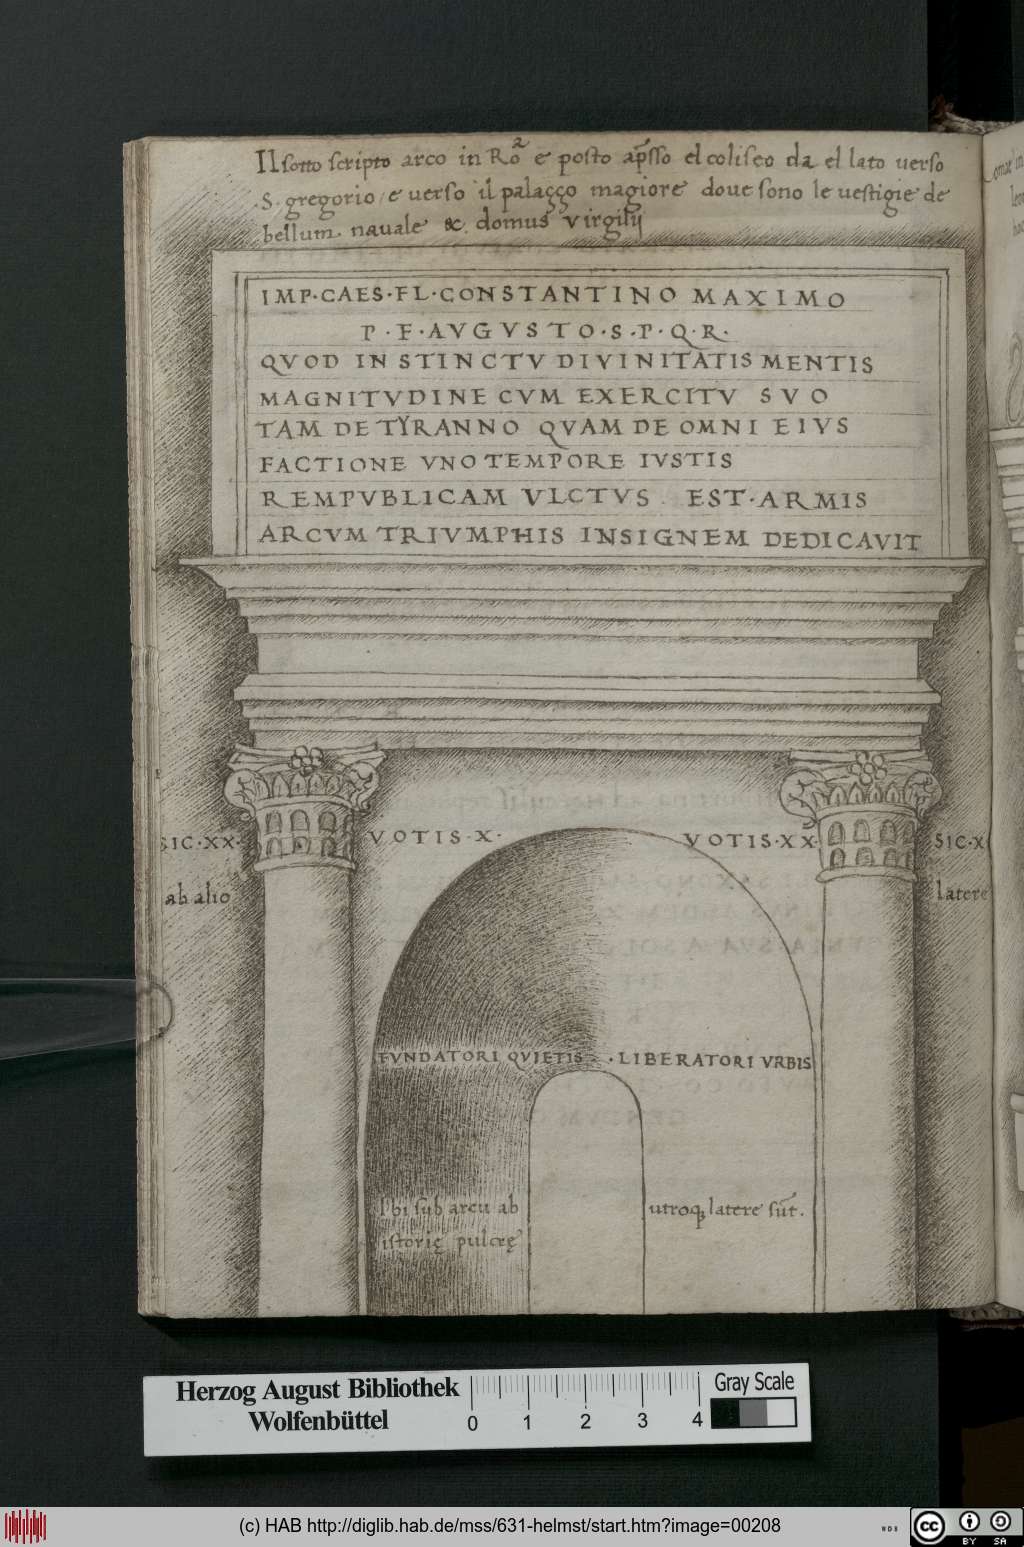 Il sotto scripto arco in Roᵃ e posto ap̄sso el coliseo da el lato uerso
.S. gregorio / e uerso il palaçço magiore doue sono le uestigie de
bellum nauale &. domus Virgilij
IMP·CAES·FL·CONSTANTINO MAXIMO
P·F·AVGVSTO·S·P·Q·R·
QVOD INSTINCTV DIVINITATIS MENTIS
MAGNITVDINE CVM EXERCITV SVO
TAM DE TYRANNO QVAM DE OMNI EIVS
FACTIONE VNO TEMPORE IVSTIS
REMPVBLICAM VLCTVS EST·ARMIS
ARCVM TRIVMPHIS INSIGNEM DEDICAVIT
SIC·XX· VOTIS·X· VOTIS·XX SIC·X
ab alio latere
FVNDATORI QVIETIS · LIBERATORI VRBIS
Ibi sub arcu ab utroq; latere sūt.
istorię pulcrę
Herzog August Bibliothek
Wolfenbüttel
0 1 2 3 4
Gray Scale
(c) HAB http://diglib.hab.de/mss/631-helmst/start.htm?image=00208
WDB
cc BY SA